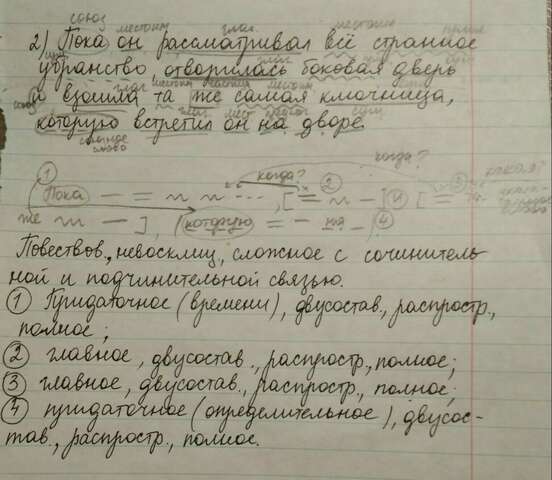 союз местоим. глаг. местоим. прил.
2) Пока он рассматривал всё странное
сущ. глаг. прил. сущ.
убранство, отворилась боковая дверь
глаг. местоим. частица местоим. сущ.
и взошла та же самая ключница,
союзное слово глаг. мест. предлог сущ.
которую встретил он на дворе.
когда?
① когда? ② ③ какая?
(Пока — = ~ ~ ..., [= ~ —] и [=
же ~ — ], (которую = — на —) ④
Повествов., невосклиц., сложное с сочинитель-
ной и подчинительной связью.
① Придаточное (времени), двусостав., распростр.,
полное;
② главное, двусостав., распростр., полное;
③ главное, двусостав., распростр., полное;
④ придаточное (определительное), двусос-
тав., распростр., полное.